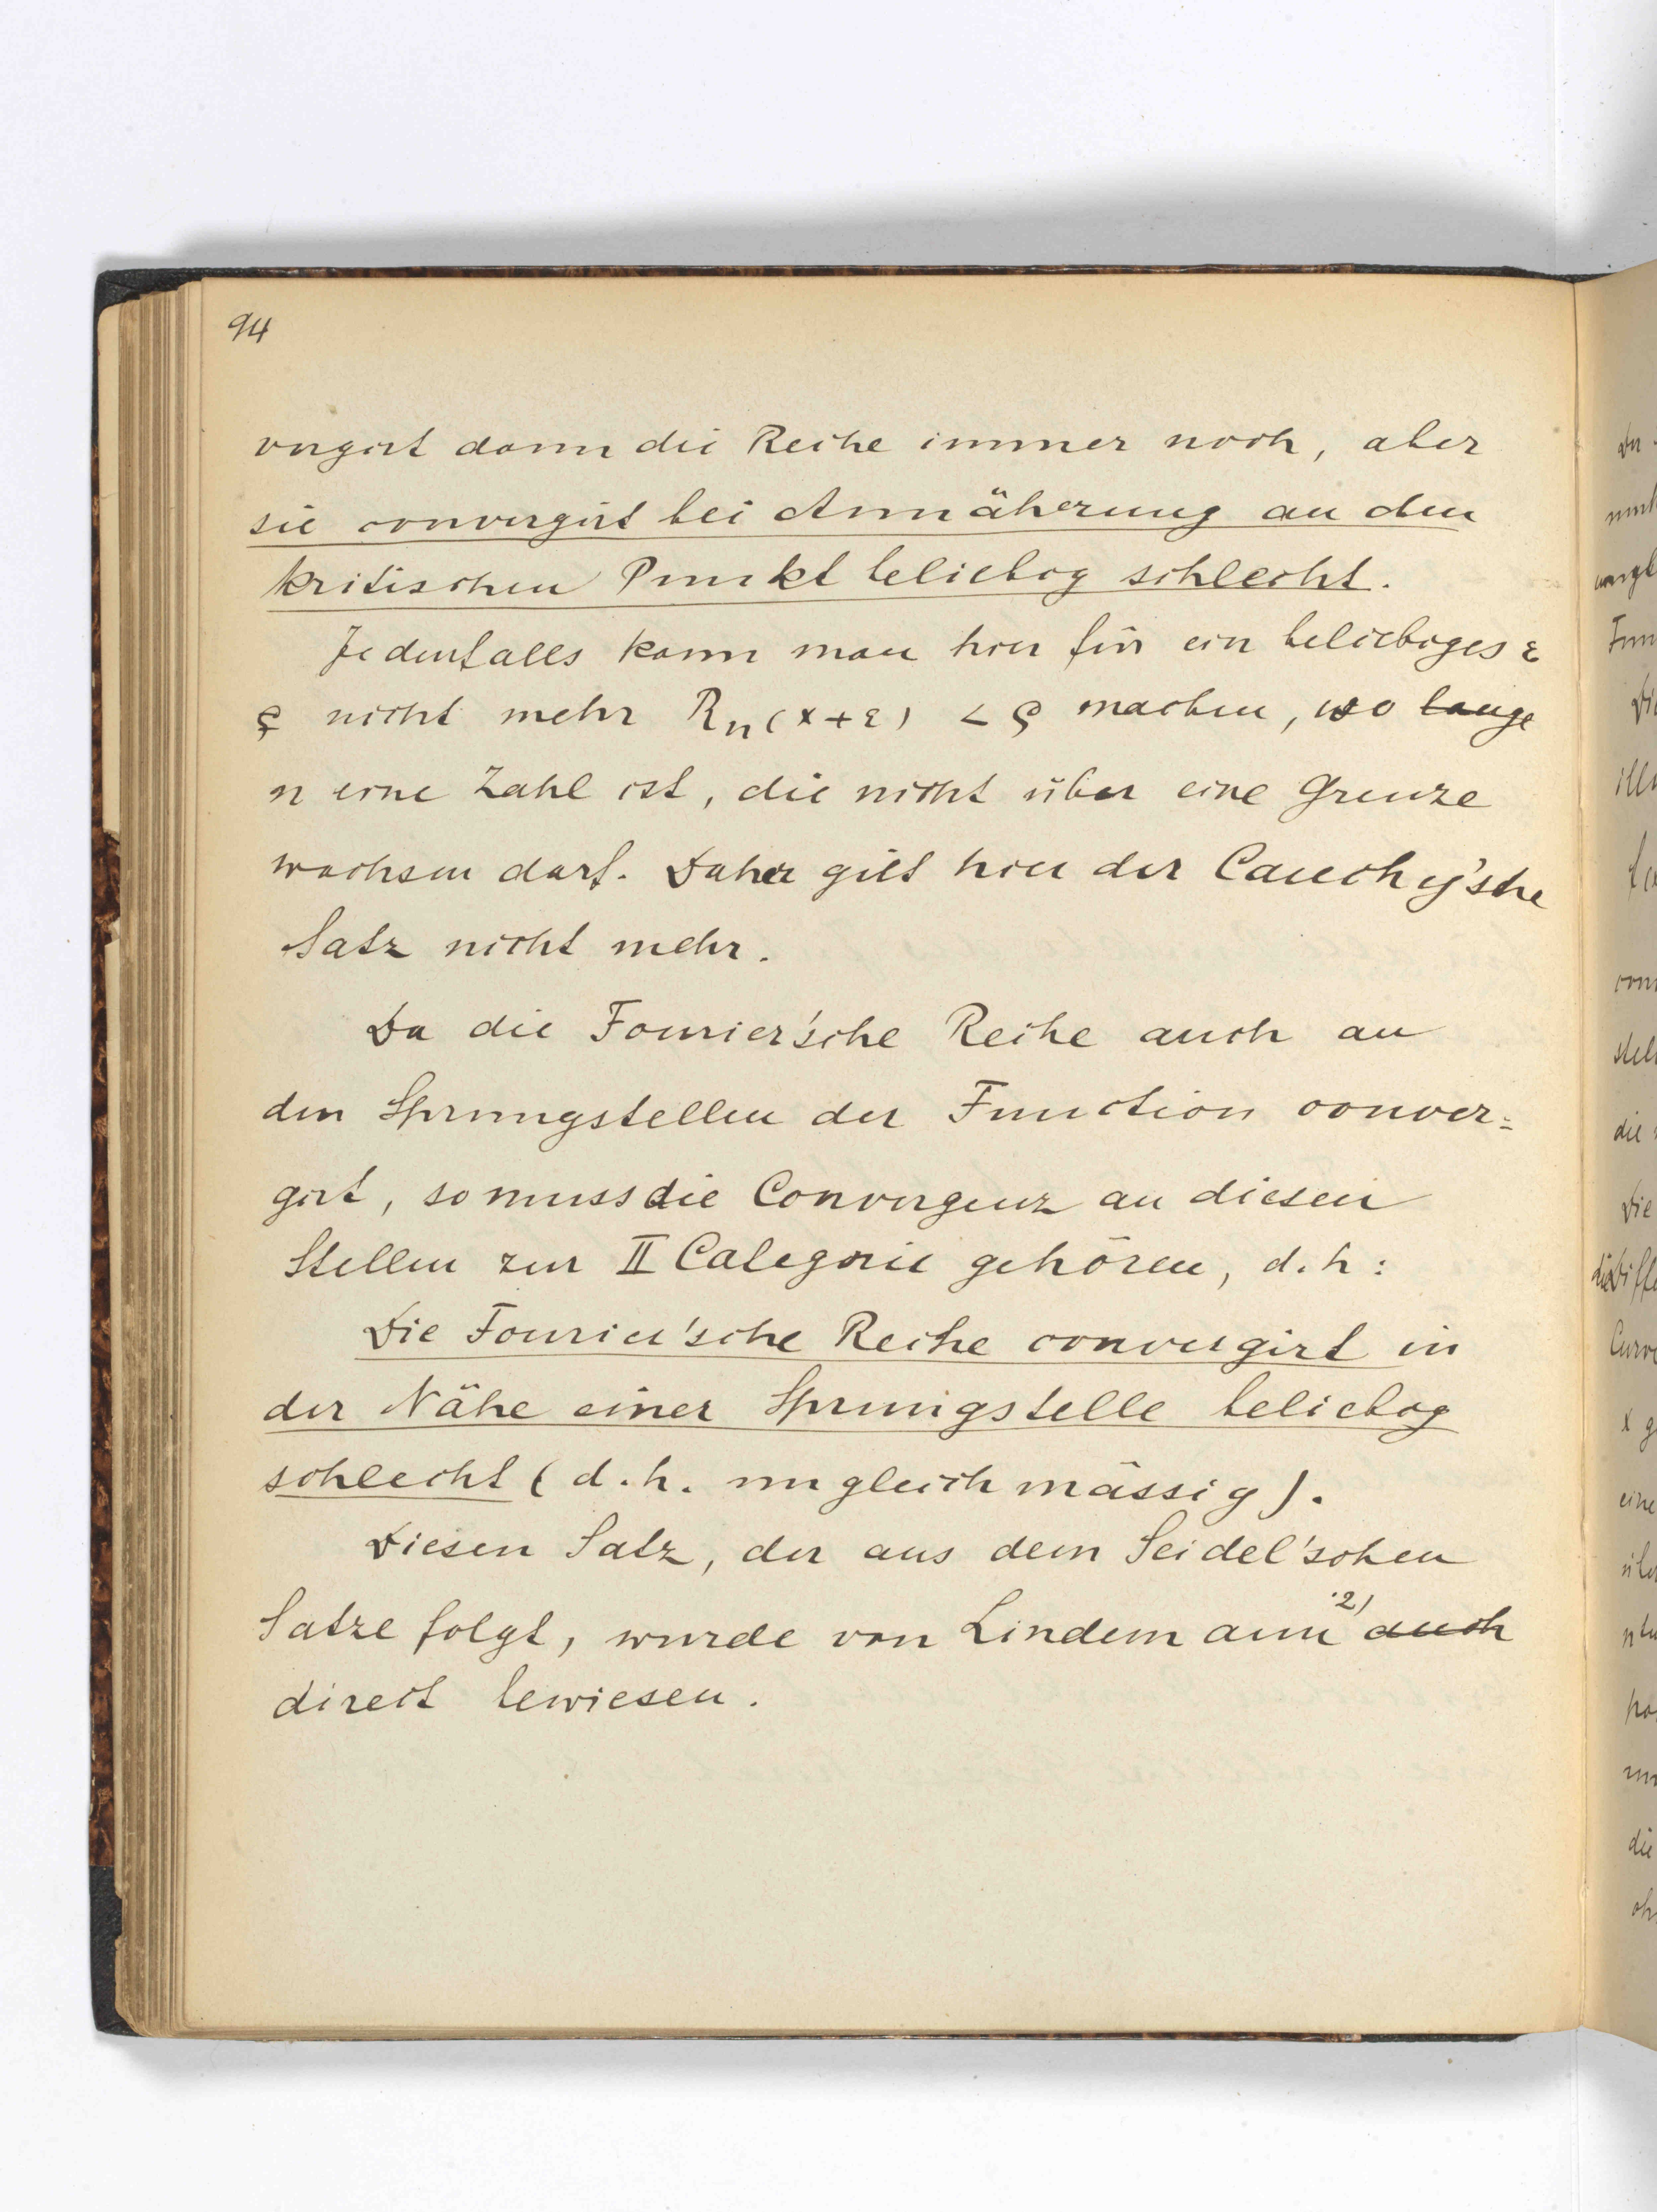 94
vergirt dann die Reihe immer noch, aber
sie convergirt bei Annäherung an den
kritischen Punkt beliebig schlecht.
Jedenfalls kann man hier für ein beliebiges ε
ς nicht mehr Rn(x+ε) < ς machen, wo lange
n eine Zahl ist, die nicht über eine Grenze
wachsen darf. Daher gilt hier der Cauchy'sche
Satz nicht mehr.
Da die Fourier'sche Reihe auch an
den Sprungstellen der Function conver-
girt, so muss die Convergenz an diesen
Stellen zur II Categorie gehören, d.h:
Die Fourier'sche Reihe convergirt in
der Nähe einer Sprungstelle beliebig
schlecht (d.h. ungleichmässig).
Diesen Satz, der aus dem Seidel'schen
Satze folgt, wurde von Lindemann 2) auch
direct bewiesen.